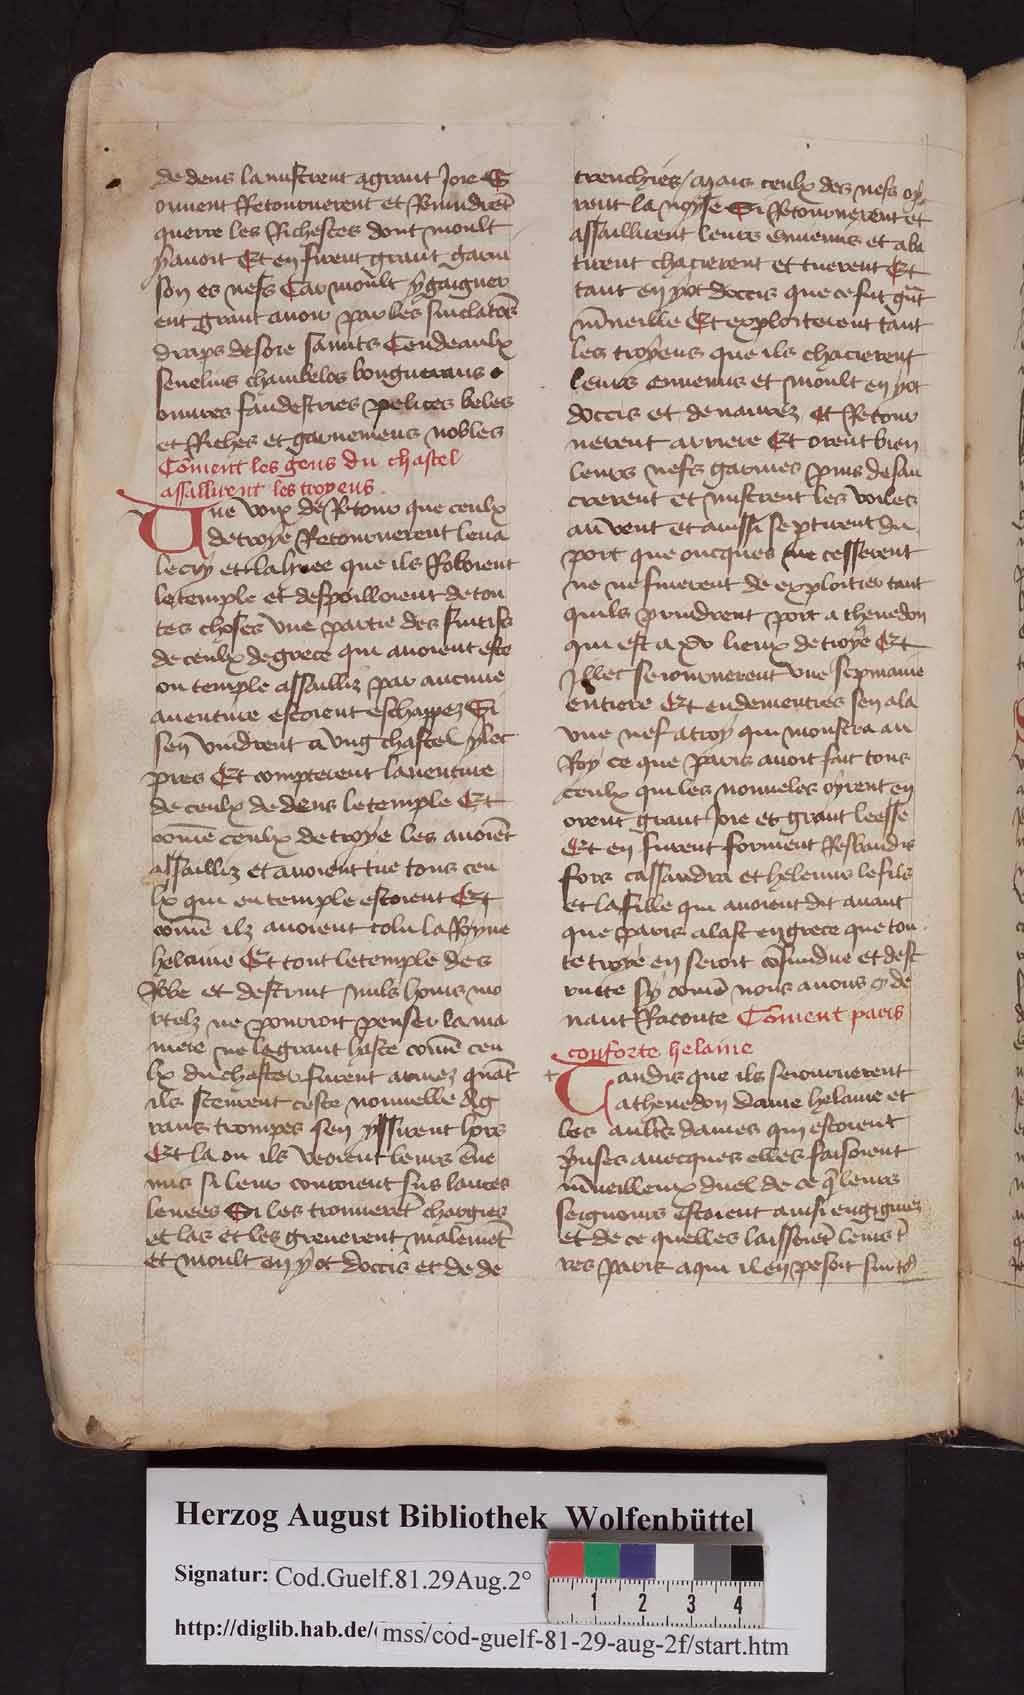 de dens la mistrent a grant Joie Et
ouuent Retournerent et Prindrēt
querre les Richesces dont moult
y auoit Et en firent grant garni
son es nefs Car moult y gaigner
ent grant auoir par les
draps de soie samits Cendeaulx
chambelos bouguerans
et Riches et garnemens nobles
Coment les gens du chastel
assallirent les troyens
Une voix de Retour que ceulx
de troye Retournerent leua
le cry et la huee que ils Roboient
le temple et despoilloient de tou
tes choses vne partie des fuitifs
de ceulx de grece qui auoient este
ou temple assailliz par aucune
auenture estoient eschappez Si
sen vindrent a vng chastel ylec
pres Et compterent lauenture
de ceulx de dens le temple Et
cōme ceulx de troye les auoiēt
assailliz et auoient tue tous ceu
lx qui en temple estoient Et
comē ilz auoient tolu la Royne
helaine Et tout le temple des
Robe et destruit Nuls homs mo
rtelz ne pourroit penser la ma
niere ne la grant haste comē ceu
lx du chastel furent armez quāt
ils sceurent ceste nouuelle A g
rans trompes sen yssirent hors
Et la ou ils veoient leurs ēne
mis si leur coururent sus lances
leuees Si les trouuerēt chargies
et las et les greuerent malemēt
et moult en y ot doccis et de de
trenchies / Mais ceulx des nefs oy
rent la noyse Si Retournerent et
assaillirent leurs ennemis et aba
tirent chacierent et tuerent Et
tant en y ot doccis que ce fut grāt
m̄ueille Et exploiterent tant
les troyens que ils chacierent
leurs ennemis et moult en y ot
doccis et de naurez Et Retour
nerent arriere Et orent bien
leurs nefs garnies puis desan
crerent et mistrent les voiles
au vent et aussi se ptirent du
port que oncques ne cesserent
ne ne finerent de exploitier tant
quils prindrent port a thenedon
qui est a xv lieux de troye Et
Illec seiournerent vne sepmaine
entiere Et endementres sen ala
vne nef a troy qui monstra au
Roy ce que paris auoit fait tous
ceulx qui les nouueles oyrent en
orent grant Joie et grant leesse
Et en furent forment Resbaudis
fors cassandra et helenus le fils
et la fille qui auoient dit auant
que paris alast en grece que tou
te troye en seroit cōfundue et dest
ruite sy comē nous auons cy de
uant Raconte Coment paris
conforte helaine
Tandis que ils seiournerent
a thenedon dame helaine et
les aultres dames qui estoient
p̄nses auecques elles faisoient
m̄ueilleux duel de ce q̄ leurs
seigneurs estoient ainsi engignez
et de ce quelles laissoiēt leurs t̄
res paris a qui il en pesoit sur to9
Herzog August Bibliothek Wolfenbüttel
Signatur: Cod.Guelf.81.29Aug.2°
1 2 3 4
http://diglib.hab.de/ mss/cod-guelf-81-29-aug-2f/start.htm